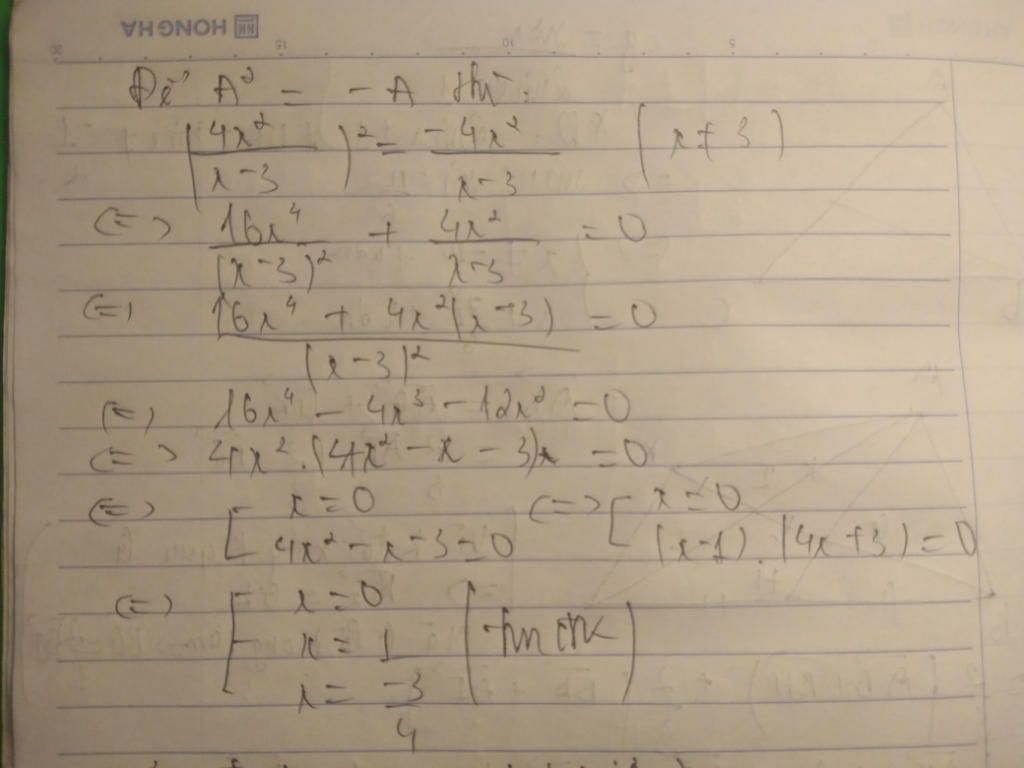 HONG HA
20 15 10 5
Để A² = -A thì:
(4x²/(x-3))² = -4x²/(x-3) (x≠3)
<=> 16x⁴/(x-3)² + 4x²/(x-3) = 0
<=> (16x⁴ + 4x²(x-3))/(x-3)² = 0
<=> 16x⁴ - 4x³ - 12x² = 0
<=> 4x².(4x² - x - 3) = 0
<=> [ x = 0 <=> [ x = 0
4x² - x - 3 = 0 (x-1).(4x+3) = 0
<=> [ x = 0
x = 1 (tm đk)
x = -3/4